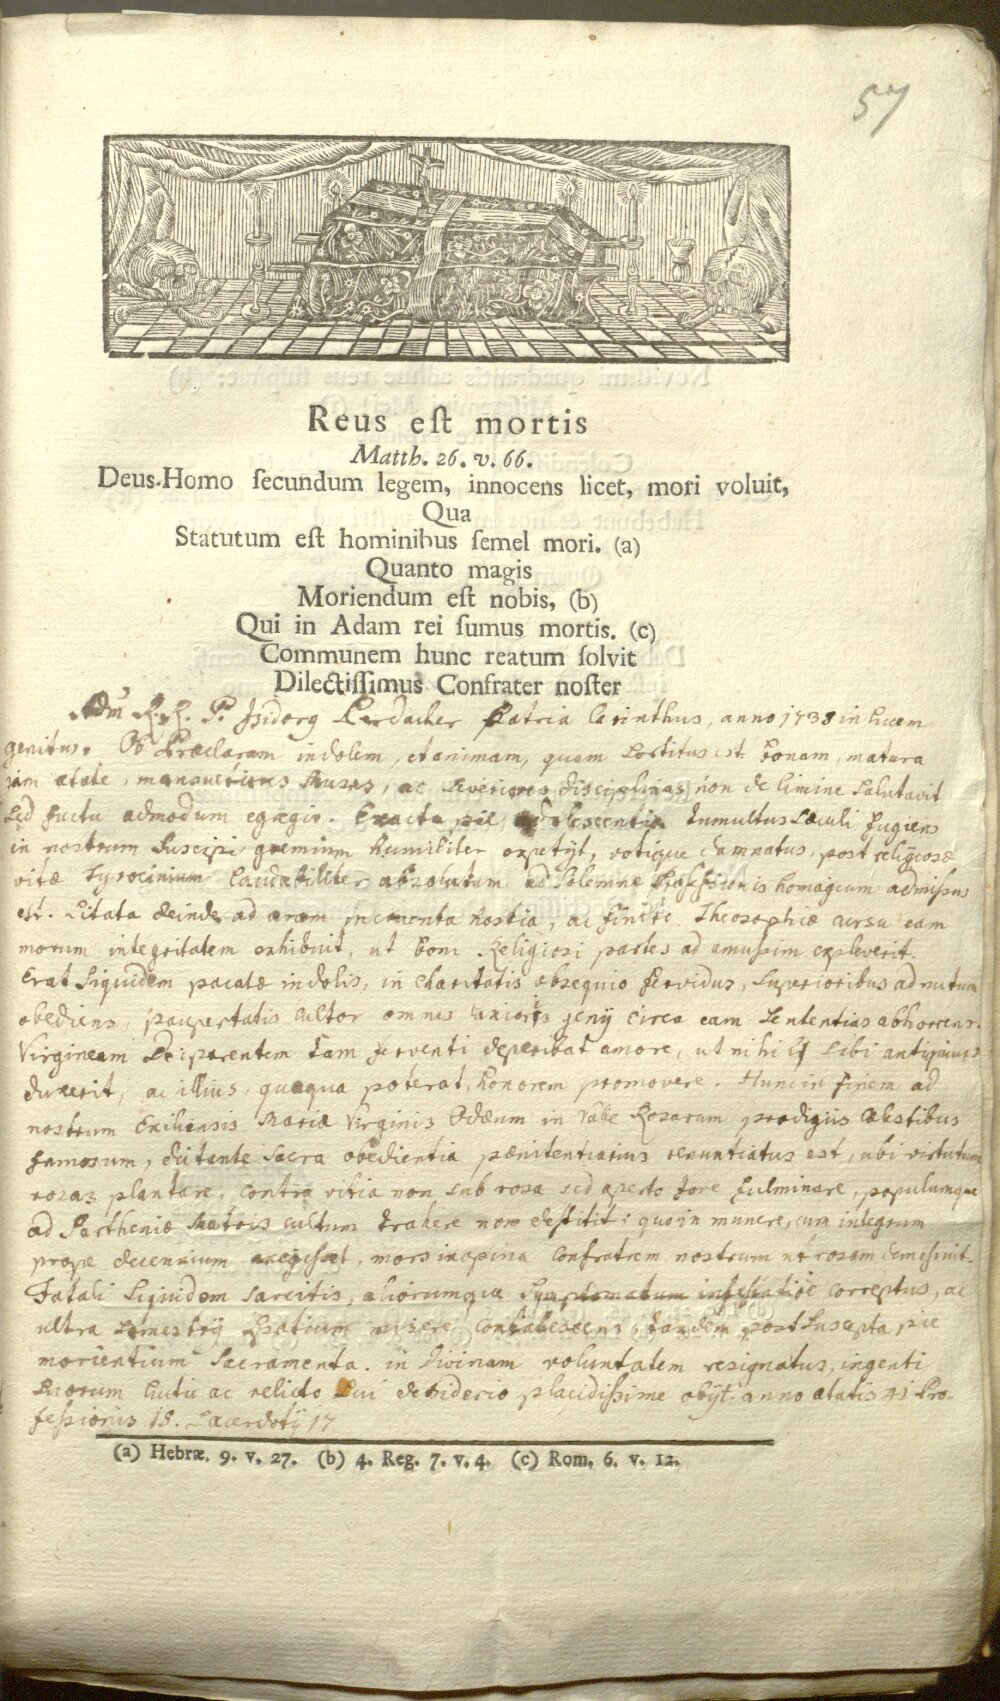 57
Reus eſt mortis
Matth. 26. v. 66.
Deus-Homo ſecundum legem, innocens licet, mori voluit,
Qua
Statutum eſt hominibus ſemel mori. (a)
Quanto magis
Moriendum eſt nobis, (b)
Qui in Adam rei ſumus mortis. (c)
Communem hunc reatum ſolvit
Dilectiſſimus Confrater noſter
Adm R. R. P. Isidorg Perdacher Patria Carinthus, anno 1738 in lucem
genitus. Ob Præclaram indolem, et animam, quam Sortitus est bonam, matura
iam ætate, mansuetiores Musas, ac Severiores disciplinas, non de limine Salutavit
Sed fructu admodum egregio. Exacta pie adolescentia tumultus Sæculi fugiens
in nostrum Suscipi gremium humiliter expetijt, votique damnatus, post religiosæ
vitæ tyrocinium laudabiliter absolutum ad Solemne Professionis homagium admissus
est. Litata deinde ad aram incruenta hostia, ac finito Theosophiæ cursu eam
morum integritatem exhibuit, ut boni Religiosi partes ad amussim expleverit.
Erat Siquidem pacatæ indolis, in Charitatis obsequio fervidus, Superioribus ad nutum
obediens, paupertatis cultor omnes laxioris genij circa eam Sententias abhorrens.
Virgineam Deiparentem tam ferventi deperibat amore, ut nihil Sibi antiquius
duxerit, ac illius, quaqua poterat, honorem promovere. Hunc in finem ad
nostrum Exiliensis Mariæ Virginis Ædæum in Valle Rosarum prodigiis cælestibus
famosum, dictante Sacra obedientia pænitentiarius renuntiatus est, ubi virtutum
rosas plantare, contra vitia non sub rosa sed aperto fore fulminare, populumque
ad Partheniæ Matris cultum trahere non destitit: quo in munere, cum integrum
prope decennium exegisset, mors inopina Confratrem nostrum ut rosam demessuit.
Fatali Siquidem Sarcitis, aliorumque Symptomatum infestatione correptus, ac
ultra Semestrij Spatium misere contabescens, tandem post Suscepta pie
morientium Sacramenta. in Divinam voluntatem resignatus, ingenti
Suorum luctu ac relicto Sui desiderio placidissime obijt anno ætatis 41 Pro-
fessionis 18. Sacerdotij 17
(a) Hebræ. 9. v. 27. (b) 4. Reg. 7. v. 4. (c) Rom. 6. v. 12.